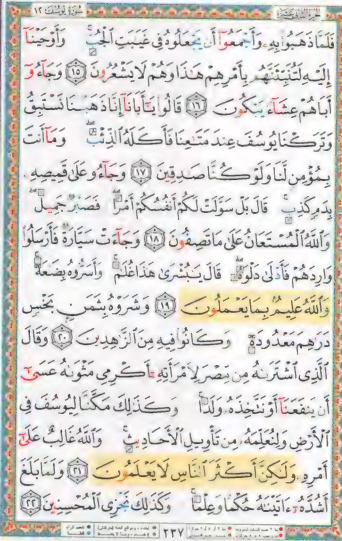 سُورَةُ يُوسُفَ ١٢
فَلَمَّا ذَهَبُوا۟ بِهِۦ وَأَجْمَعُوٓا۟ أَن يَجْعَلُوهُ فِى غَيَٰبَتِ ٱلْجُبِّ ۚ وَأَوْحَيْنَآ
إِلَيْهِ لَتُنَبِّئَنَّهُم بِأَمْرِهِمْ هَٰذَا وَهُمْ لَا يَشْعُرُونَ ١٥ وَجَآءُو
أَبَاهُمْ عِشَآءً يَبْكُونَ ١٦ قَالُوا۟ يَٰٓأَبَانَآ إِنَّا ذَهَبْنَا نَسْتَبِقُ
وَتَرَكْنَا يُوسُفَ عِندَ مَتَٰعِنَا فَأَكَلَهُ ٱلذِّئْبُ ۖ وَمَآ أَنتَ
بِمُؤْمِنٍ لَّنَا وَلَوْ كُنَّا صَٰدِقِينَ ١٧ وَجَآءُو عَلَىٰ قَمِيصِهِۦ
بِدَمٍ كَذِبٍ ۚ قَالَ بَلْ سَوَّلَتْ لَكُمْ أَنفُسُكُمْ أَمْرًا ۖ فَصَبْرٌ جَمِيلٌ ۖ
وَٱللَّهُ ٱلْمُسْتَعَانُ عَلَىٰ مَا تَصِفُونَ ١٨ وَجَآءَتْ سَيَّارَةٌ فَأَرْسَلُوا۟
وَارِدَهُمْ فَأَدْلَىٰ دَلْوَهُۥ ۖ قَالَ يَٰبُشْرَىٰ هَٰذَا غُلَٰمٌ ۚ وَأَسَرُّوهُ بِضَٰعَةً ۚ
وَٱللَّهُ عَلِيمٌۢ بِمَا يَعْمَلُونَ ١٩ وَشَرَوْهُ بِثَمَنٍۭ بَخْسٍ
دَرَٰهِمَ مَعْدُودَةٍ وَكَانُوا۟ فِيهِ مِنَ ٱلزَّٰهِدِينَ ٢٠ وَقَالَ
ٱلَّذِى ٱشْتَرَىٰهُ مِن مِّصْرَ لِٱمْرَأَتِهِۦٓ أَكْرِمِى مَثْوَىٰهُ عَسَىٰٓ
أَن يَنفَعَنَآ أَوْ نَتَّخِذَهُۥ وَلَدًا ۚ وَكَذَٰلِكَ مَكَّنَّا لِيُوسُفَ فِى
ٱلْأَرْضِ وَلِنُعَلِّمَهُۥ مِن تَأْوِيلِ ٱلْأَحَادِيثِ ۚ وَٱللَّهُ غَالِبٌ عَلَىٰٓ
أَمْرِهِۦ وَلَٰكِنَّ أَكْثَرَ ٱلنَّاسِ لَا يَعْلَمُونَ ٢١ وَلَمَّا بَلَغَ
أَشُدَّهُۥٓ ءَاتَيْنَٰهُ حُكْمًا وَعِلْمًا ۚ وَكَذَٰلِكَ نَجْزِى ٱلْمُحْسِنِينَ ٢٢
٢٣٧